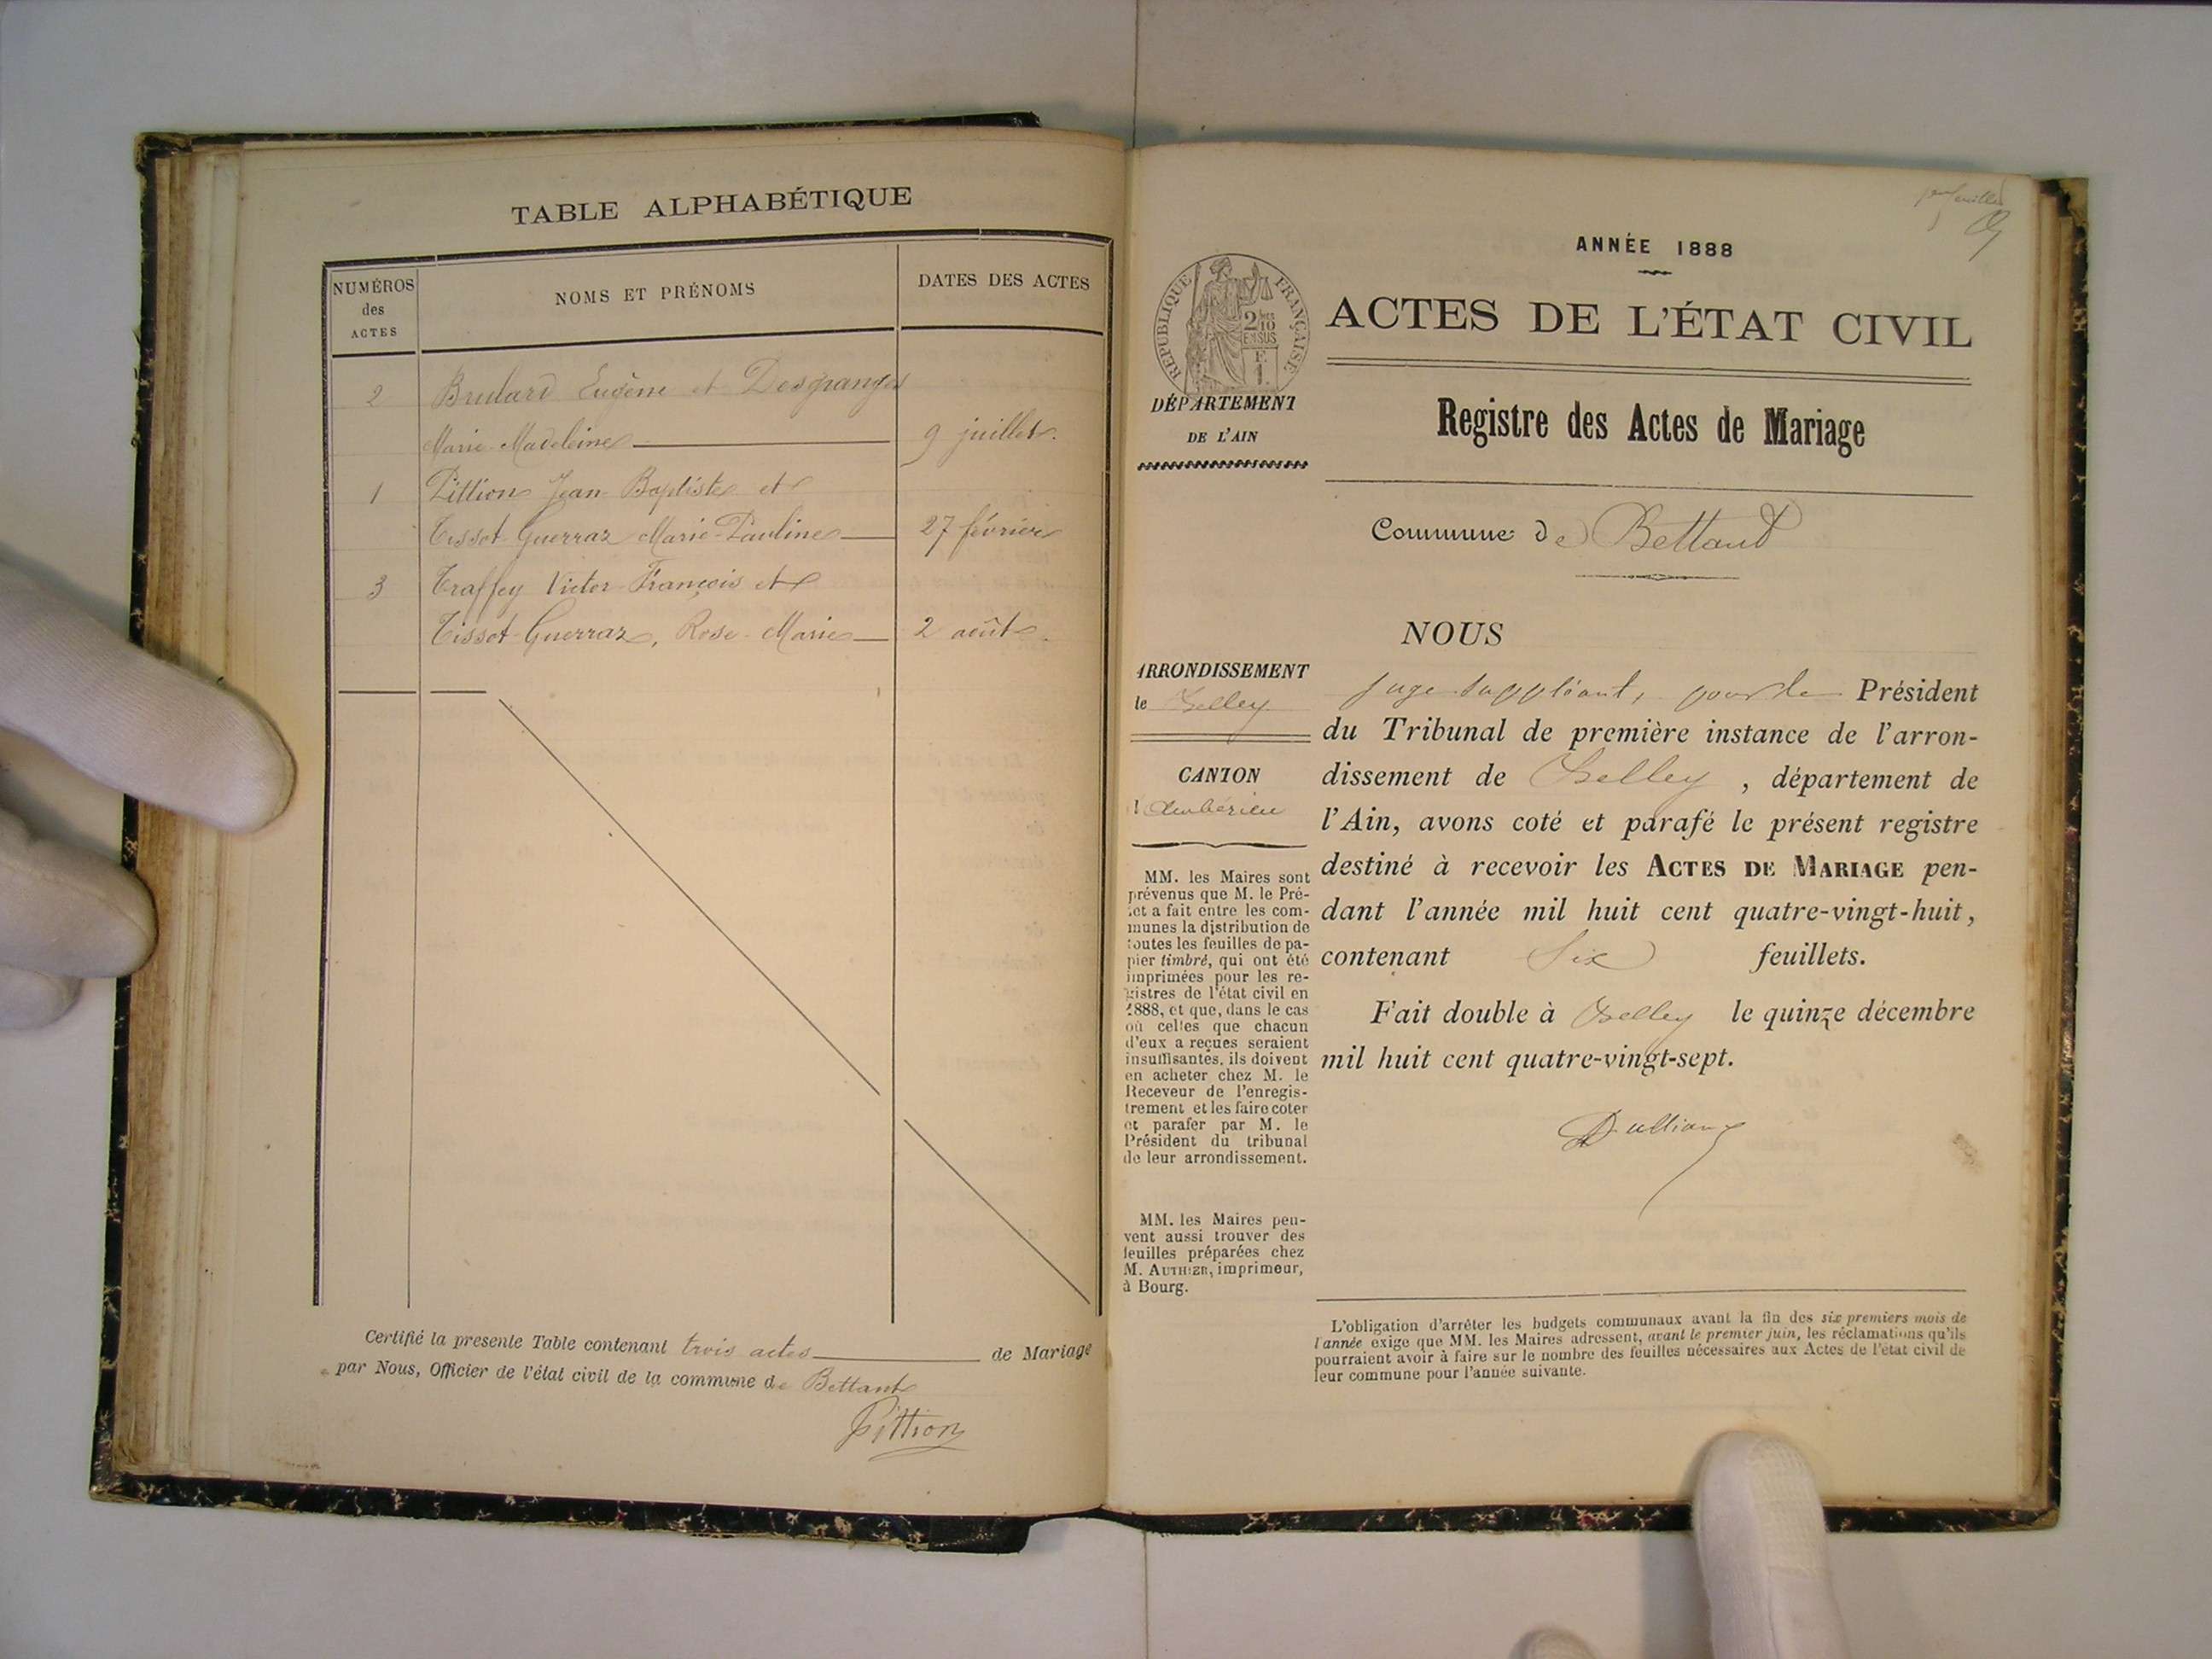 TABLE ALPHABÉTIQUE
NUMÉROS
des
ACTES
NOMS ET PRÉNOMS
DATES DES ACTES
2 Brulard Eugène et Desgranges
Marie-Madeleine 9 juillet.
1 Pittion Jean-Baptiste et
Tissot-Guerraz Marie-Pauline 27 février
3 Traffey Victor-François et
Tissot-Guerraz, Rose-Marie 2 août.
Certifié la presente Table contenant trois actes de Mariage
par Nous, Officier de l'état civil de la commune de Bettant
Pittion
ANNÉE 1888
RÉPUBLIQUE FRANÇAISE
2/10
EN SUS
F.
1.
ACTES DE L'ÉTAT CIVIL
DÉPARTEMENT
DE L'AIN
Registre des Actes de Mariage
Commune de Bettant
NOUS
ARRONDISSEMENT
de Belley
CANTON
d'Ambérieu
MM. les Maires sont
prévenus que M. le Pré-
fet a fait entre les com-
munes la distribution de
toutes les feuilles de pa-
pier timbré, qui ont été
imprimées pour les re-
gistres de l'état civil en
1888, et que, dans le cas
où celles que chacun
d'eux a reçues seraient
insuffisantes, ils doivent
en acheter chez M. le
Receveur de l'enregis-
trement et les faire coter
et parafer par M. le
Président du tribunal
de leur arrondissement.
MM. les Maires peu-
vent aussi trouver des
feuilles préparées chez
M. AUTHIER, imprimeur,
à Bourg.
juge suppléant, pour le Président
du Tribunal de première instance de l'arron-
dissement de Belley, département de
l'Ain, avons coté et parafé le présent registre
destiné à recevoir les ACTES DE MARIAGE pen-
dant l'année mil huit cent quatre-vingt-huit,
contenant Six feuillets.
Fait double à Belley le quinze décembre
mil huit cent quatre-vingt-sept.
L'obligation d'arrêter les budgets communaux avant la fin des six premiers mois de
l'année exige que MM. les Maires adressent, avant le premier juin, les réclamations qu'ils
pourraient avoir à faire sur le nombre des feuilles nécessaires aux Actes de l'état civil de
leur commune pour l'année suivante.